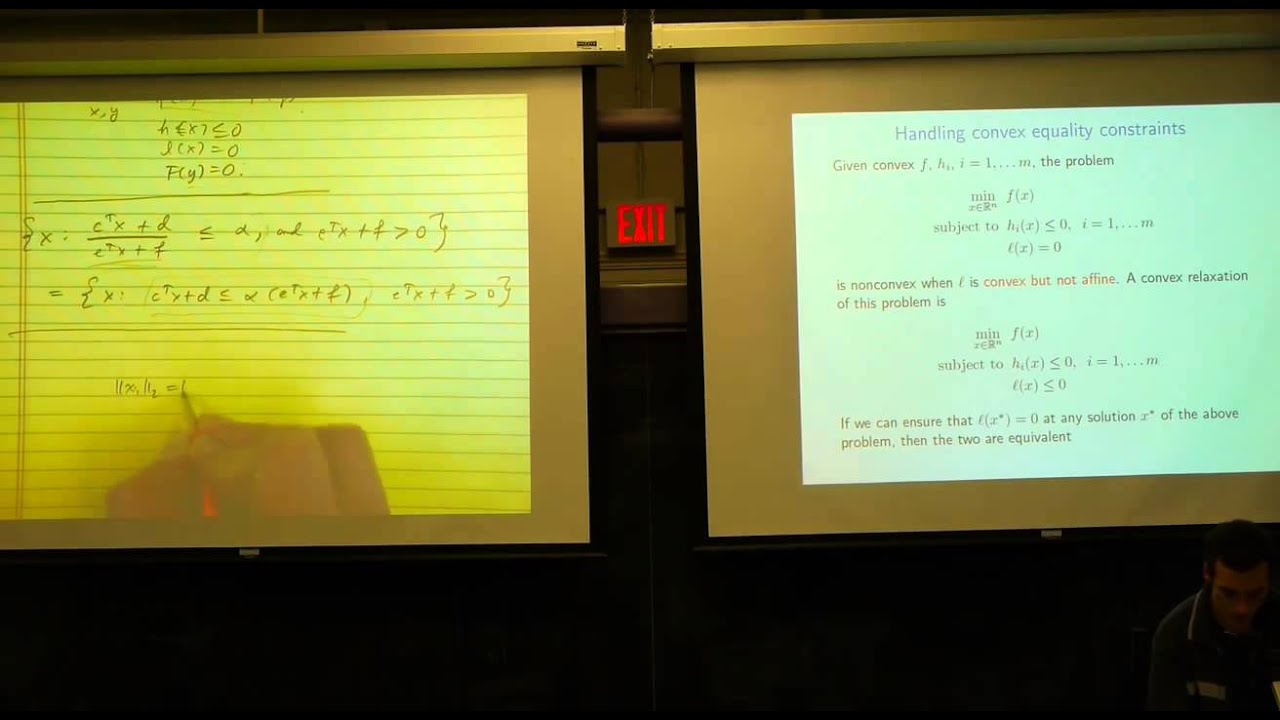 x, y
h(x) ≤ 0
l(x) = 0
F(y) = 0.
{x : (cᵀx + d)/(eᵀx + f) ≤ α, and eᵀx + f > 0}
= {x : cᵀx + d ≤ α (eᵀx + f), eᵀx + f > 0}
||x,||₂ = 1
EXIT
Handling convex equality constraints
Given convex f, hᵢ, i = 1, . . . m, the problem
min f(x)
x∈ℝⁿ
subject to hᵢ(x) ≤ 0, i = 1, . . . m
ℓ(x) = 0
is nonconvex when ℓ is convex but not affine. A convex relaxation
of this problem is
min f(x)
x∈ℝⁿ
subject to hᵢ(x) ≤ 0, i = 1, . . . m
ℓ(x) ≤ 0
If we can ensure that ℓ(x*) = 0 at any solution x* of the above
problem, then the two are equivalent